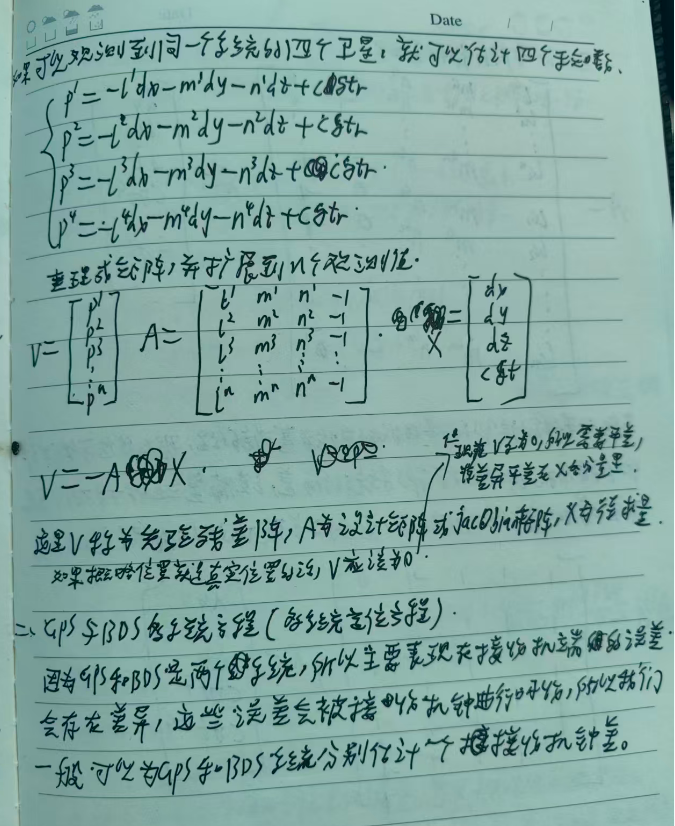 Date
如果可以观测到同一个系统的四个卫星，就可以估计四个未知数.
p¹=-l¹dx-m¹dy-n¹dz+cδtr
p²=-l²dx-m²dy-n²dz+cδtr
p³=-l³dx-m³dy-n³dz+cδtr.
p⁴=-l⁴dx-m⁴dy-n⁴dz+cδtr.
整理成矩阵，并扩展到n个观测值.
V=[p¹ p² p³ ⋮ pⁿ] A=[l¹ m¹ n¹ -1 l² m² n² -1 l³ m³ n³ -1 ⋮ ⋮ ⋮ ⋮ lⁿ mⁿ nⁿ -1]. X=[dx dy dz cδt]
V=-AX.
但现在V不为0,所以需要平差,
将差异平差至X各分量里.
这里V称为先验残差阵，A为设计矩阵或Jacobian矩阵，X为待求量.
如果概略位置就是真实位置的话，V应该为0.
二、GPS与BDS的系统方程(的系统定位方程).
因为GPS和BDS是两个系统，所以主要表现在接收机端的误差.
会存在差异，这些误差会被接收机钟进行吸收，所以我们
一般可以为GPS和BDS系统分别估计一个接收机钟差。